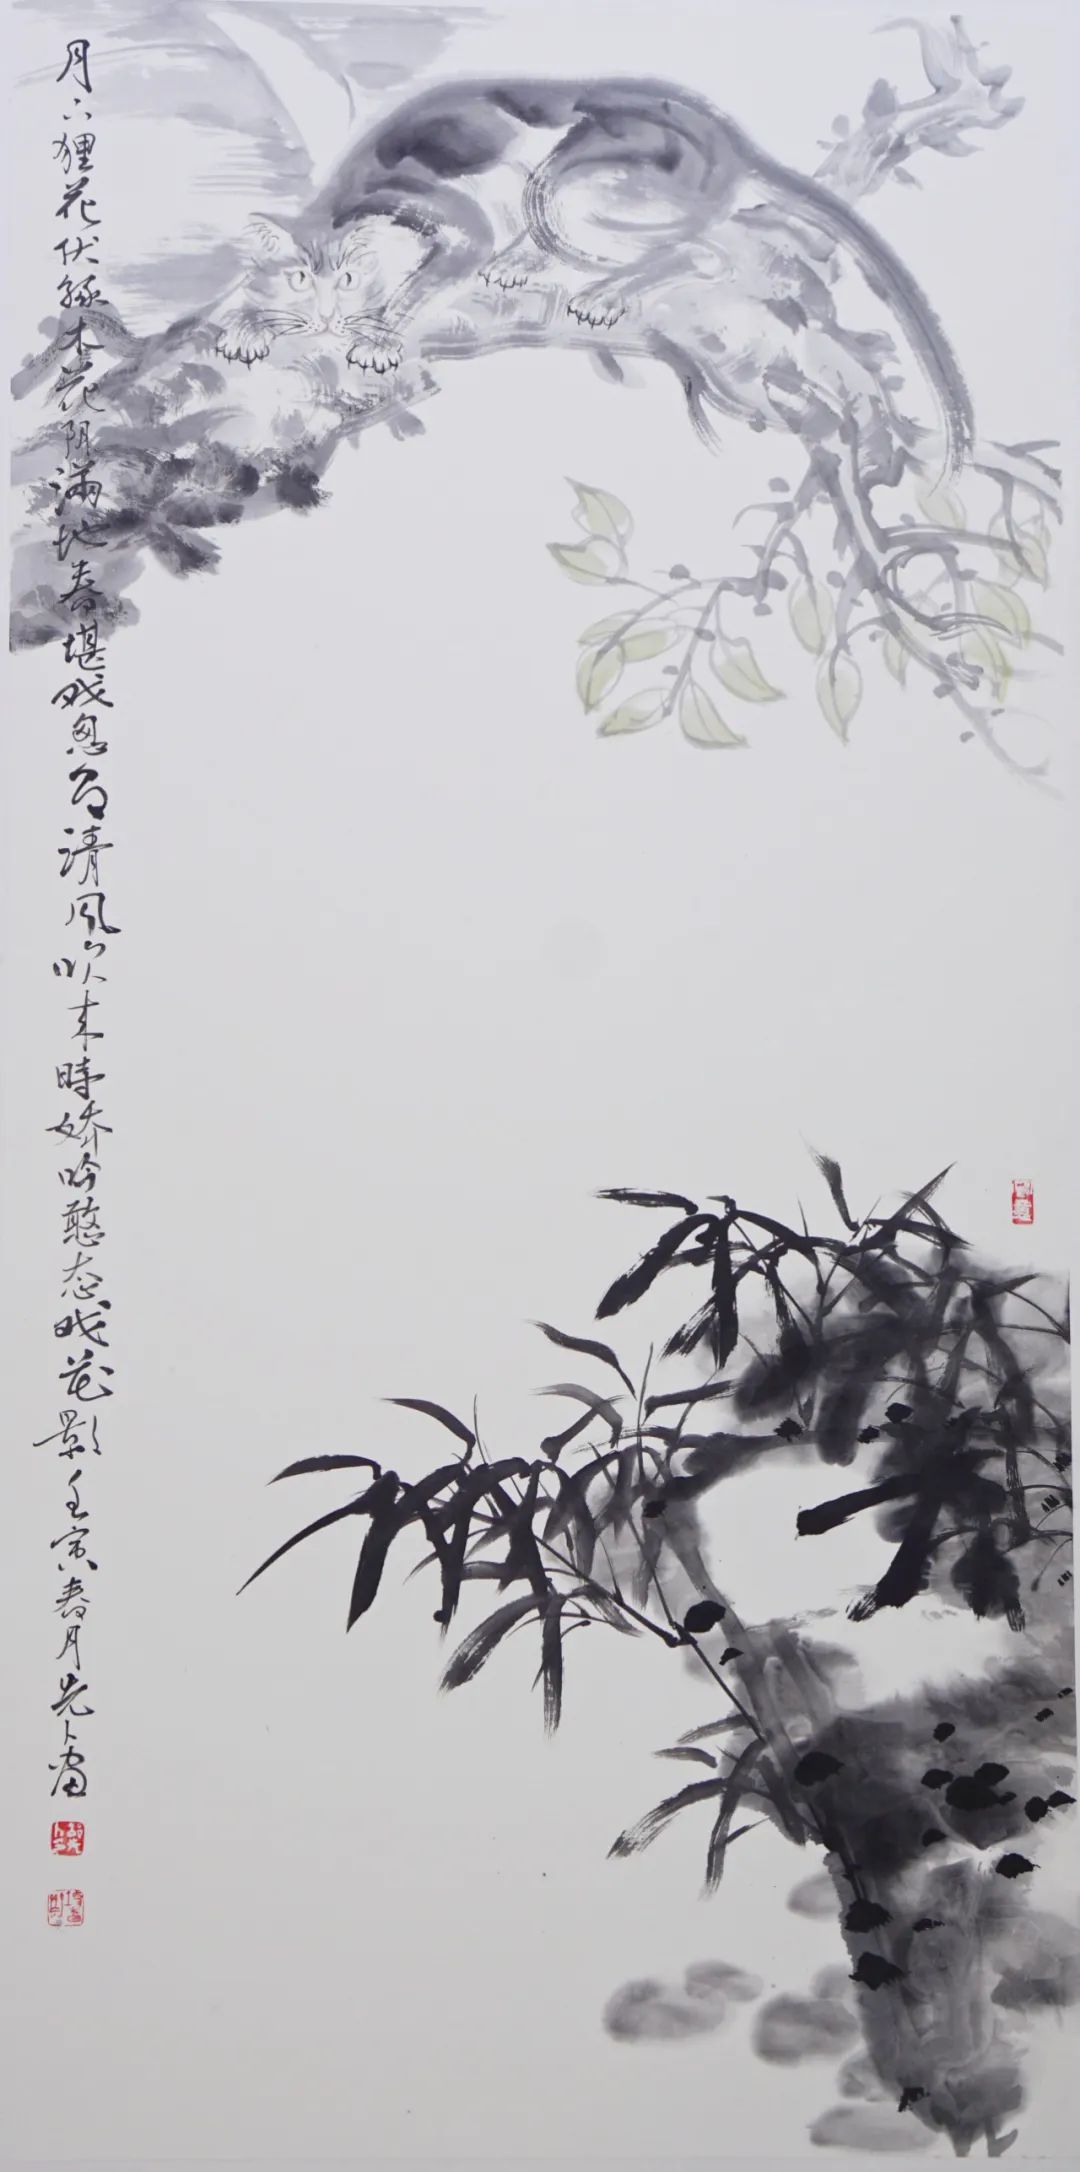 月下狸花伏緑木花阴满地春堪戏忽有清风吹来時娇吟憨态戏花影壬寅春月先卜画